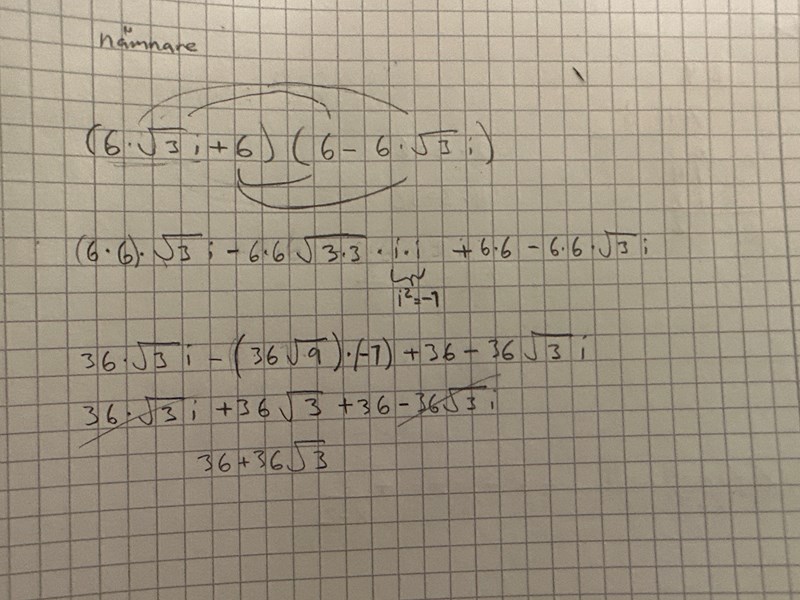 nämnare
(6·√3 i + 6) (6 - 6·√3 i)
(6·6)·√3 i - 6·6 √3·3 · i·i + 6·6 - 6·6·√3 i
i²=-1
36·√3 i - (36√9)·(-1) + 36 - 36√3 i
36·√3 i + 36√3 + 36 - 36√3 i
36+36√3